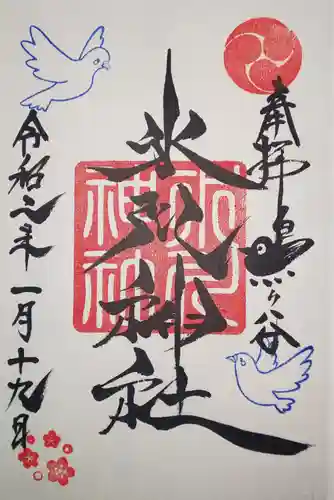 奉拝 鳩ヶ谷
氷川神社
氷川神社
令和二年一月十九日